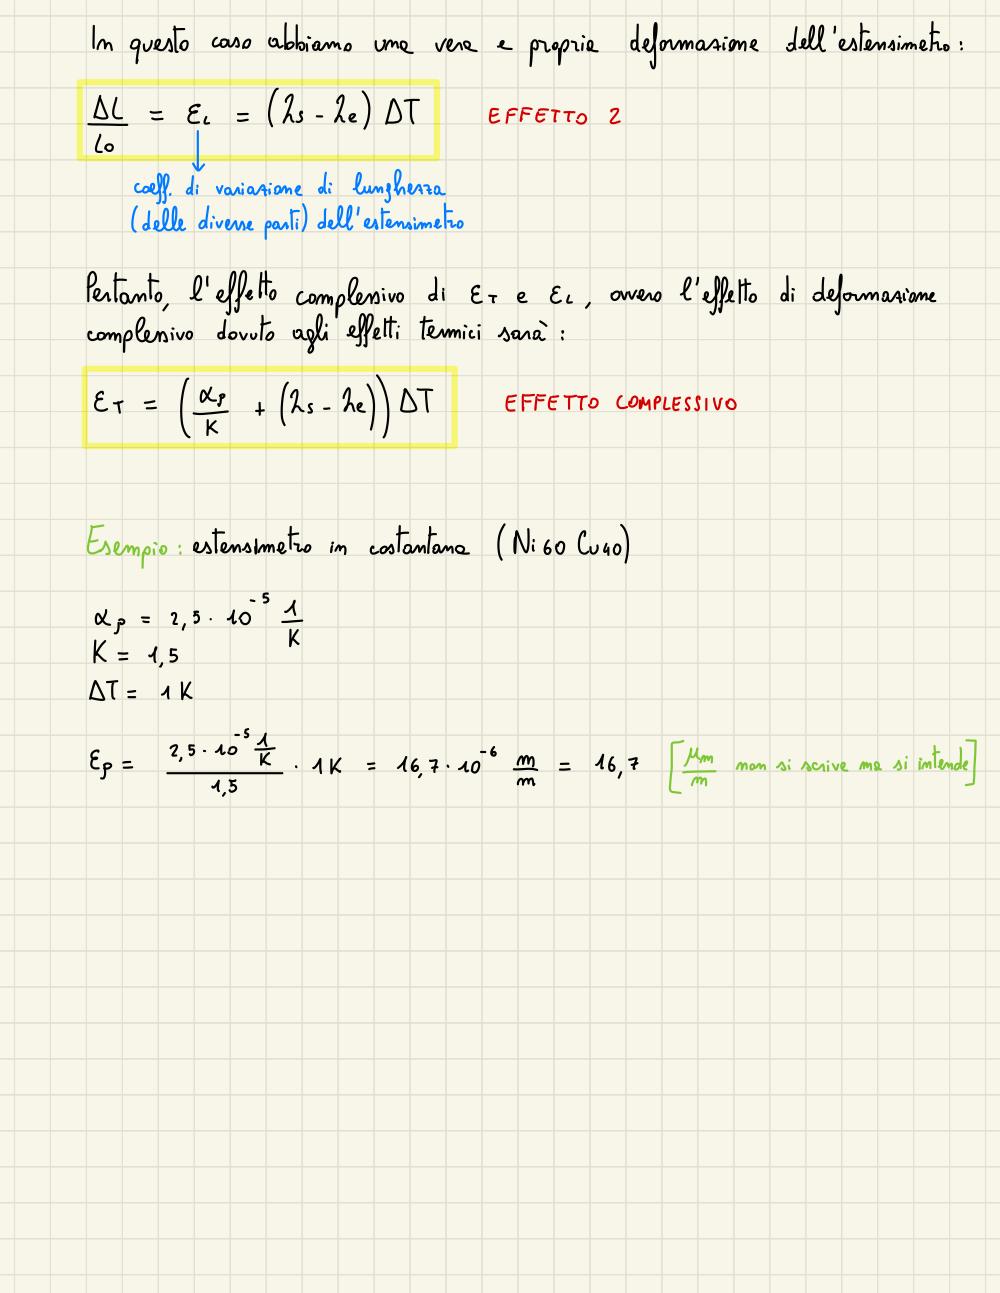 In questo caso abbiamo una vera e propria deformazione dell'estensimetro:
ΔL/L0 = εL = (λs - λe) ΔT EFFETTO 2
coeff. di variazione di lunghezza
(delle diverse parti) dell'estensimetro
Pertanto, l'effetto complessivo di εT e εL, ovvero l'effetto di deformazione
complessivo dovuto agli effetti termici sarà:
εT = (αρ/K + (λs - λe)) ΔT EFFETTO COMPLESSIVO
Esempio: estensimetro in costantana (Ni60 Cu40)
αρ = 2,5 · 10^-5 1/K
K = 1,5
ΔT = 1 K
ερ = (2,5 · 10^-5 1/K)/1,5 · 1K = 16,7 · 10^-6 m/m = 16,7 [μm/m non si scrive ma si intende]